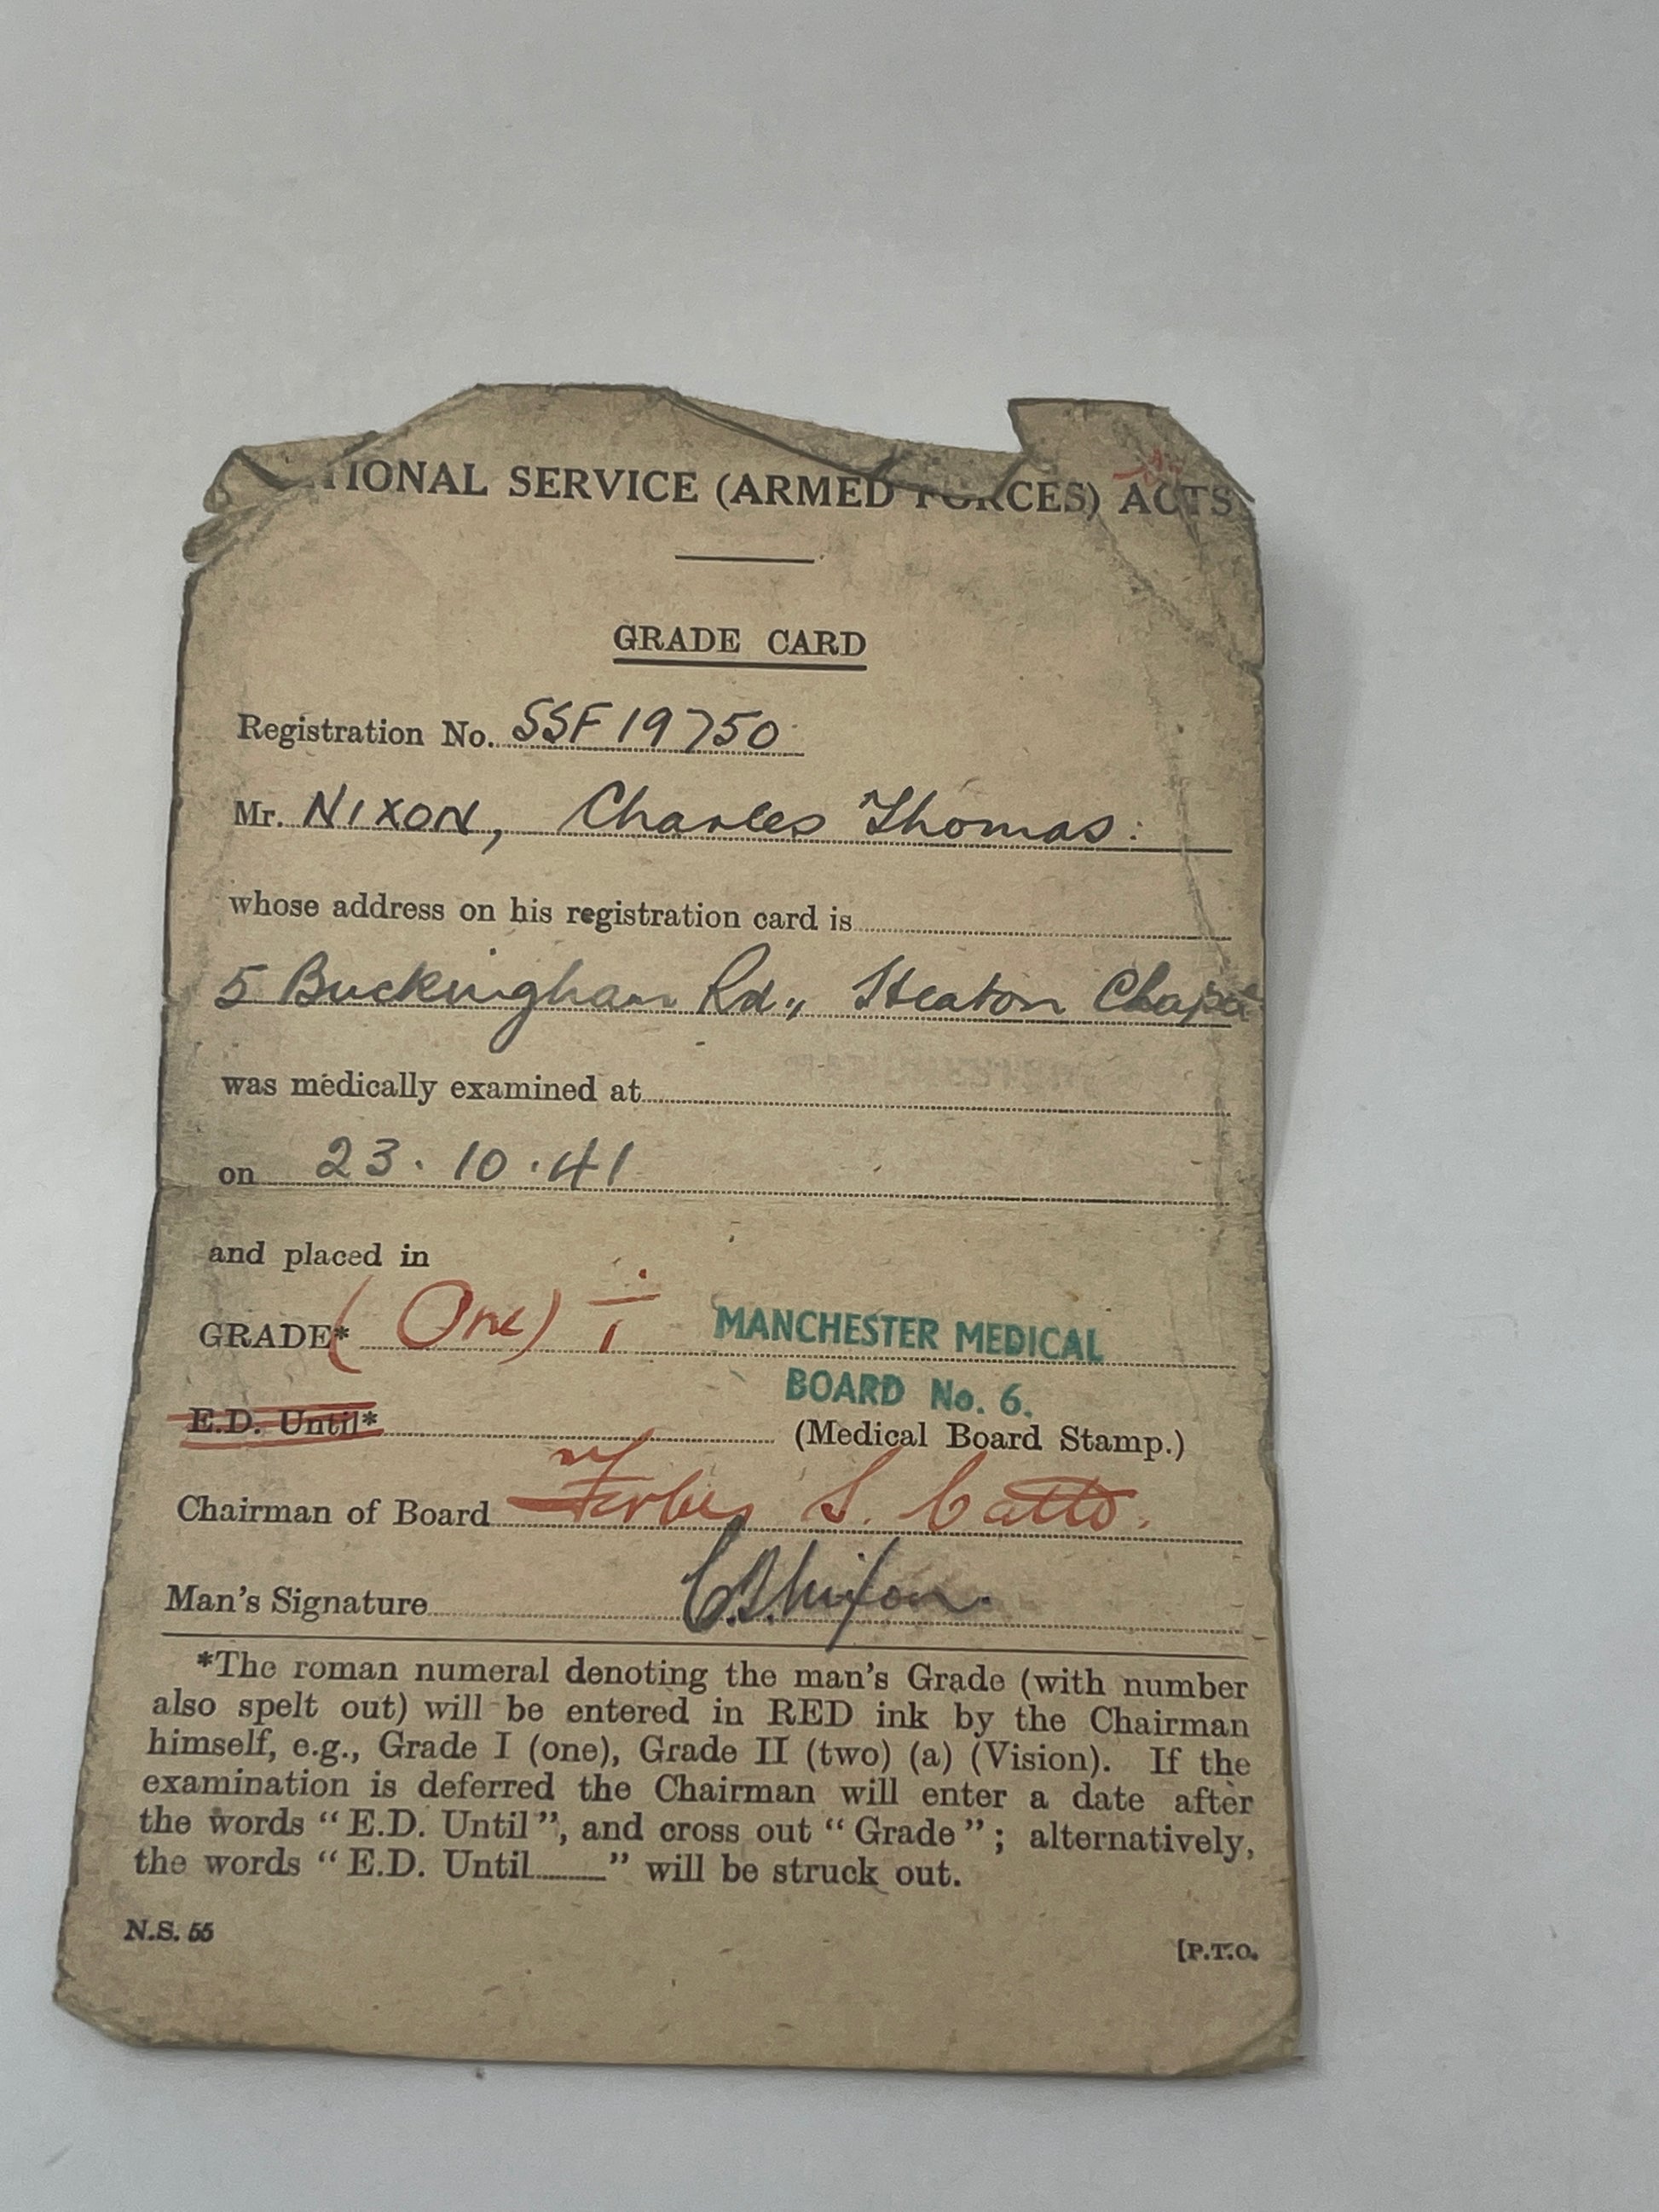 TIONAL SERVICE (ARMED FORCES) ACTS
GRADE CARD
Registration No. SSF 19750
Mr. NIXON, Charles Thomas:
whose address on his registration card is
5 Buckingham Rd., Heaton Chapel
was medically examined at
on 23.10.41
and placed in
GRADE* (One) I MANCHESTER MEDICAL
BOARD No. 6.
E.D. Until* (Medical Board Stamp.)
Chairman of Board Forbes S. Catto.
Man's Signature C.T. Nixon.
*The roman numeral denoting the man's Grade (with number
also spelt out) will be entered in RED ink by the Chairman
himself, e.g., Grade I (one), Grade II (two) (a) (Vision). If the
examination is deferred the Chairman will enter a date after
the words "E.D. Until", and cross out "Grade"; alternatively,
the words "E.D. Until......" will be struck out.
N.S. 55
[P.T.O.